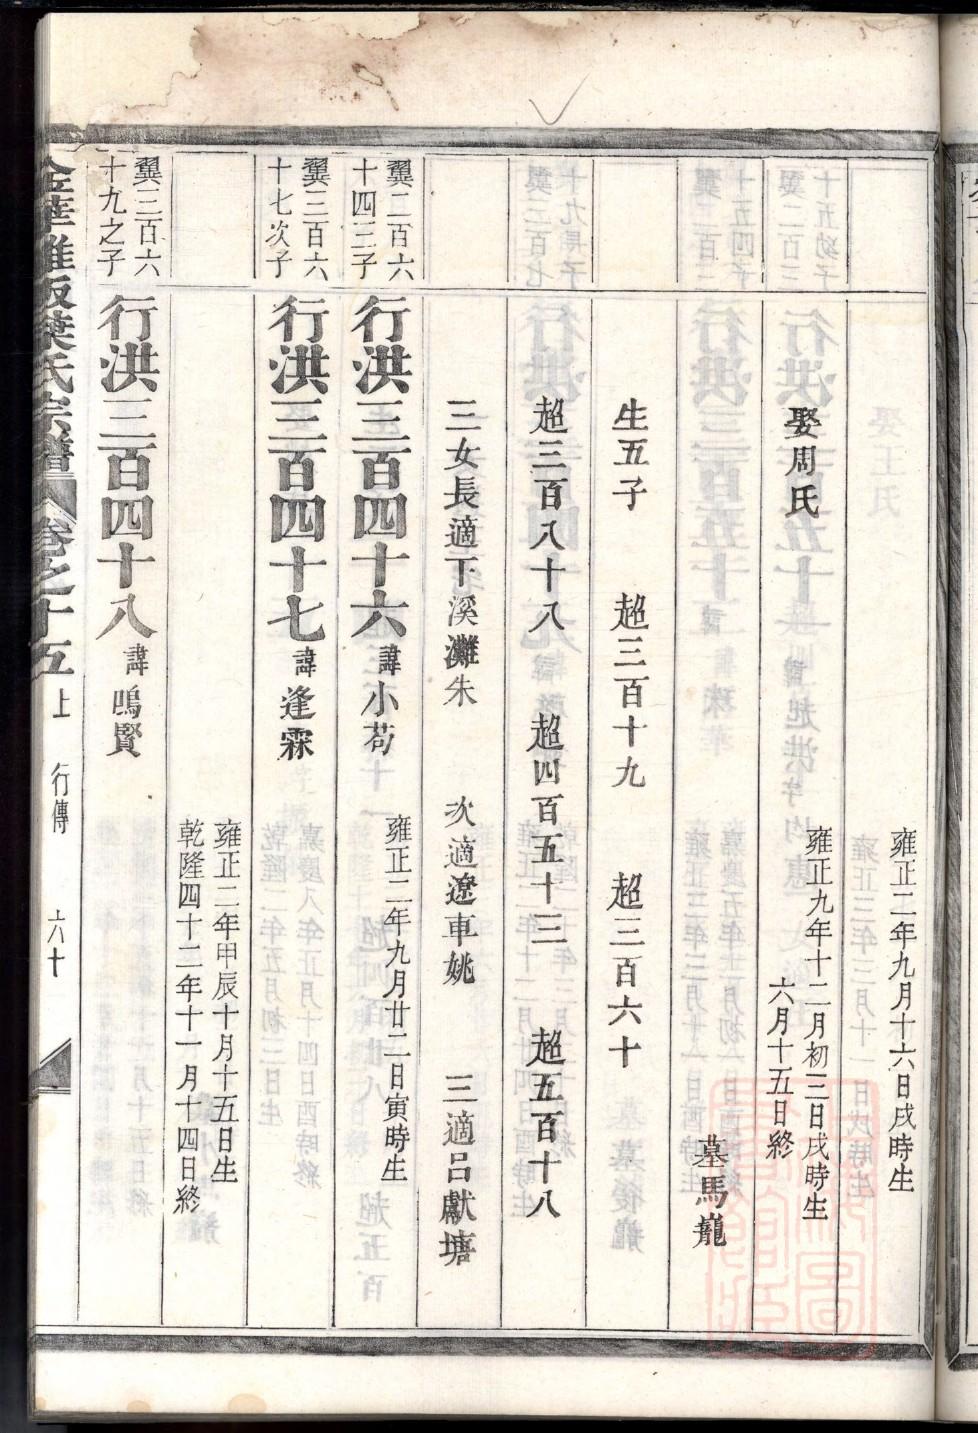 雍正二年九月十六日戌時生
娶周氏
雍正九年十二月初三日戌時生
六月十五日終
墓馬巃
生五子 超三百十九 超三百六十
超三百八十八 超四百五十三 超五百十八
三女長適下溪灘朱 次適遼車姚 三適呂獻塘
翼二百六十四三子
行洪三百四十六 諱小苟
雍正二年九月廿二日寅時生
翼三百六十七次子
行洪三百四十七 諱逢霖
雍正二年甲辰十月十五日生
乾隆四十二年十一月十四日終
翼三百六十九之子
行洪三百四十八 諱鳴賢
金華雅版葉氏宗譜 卷之十五 上 行傳 六十